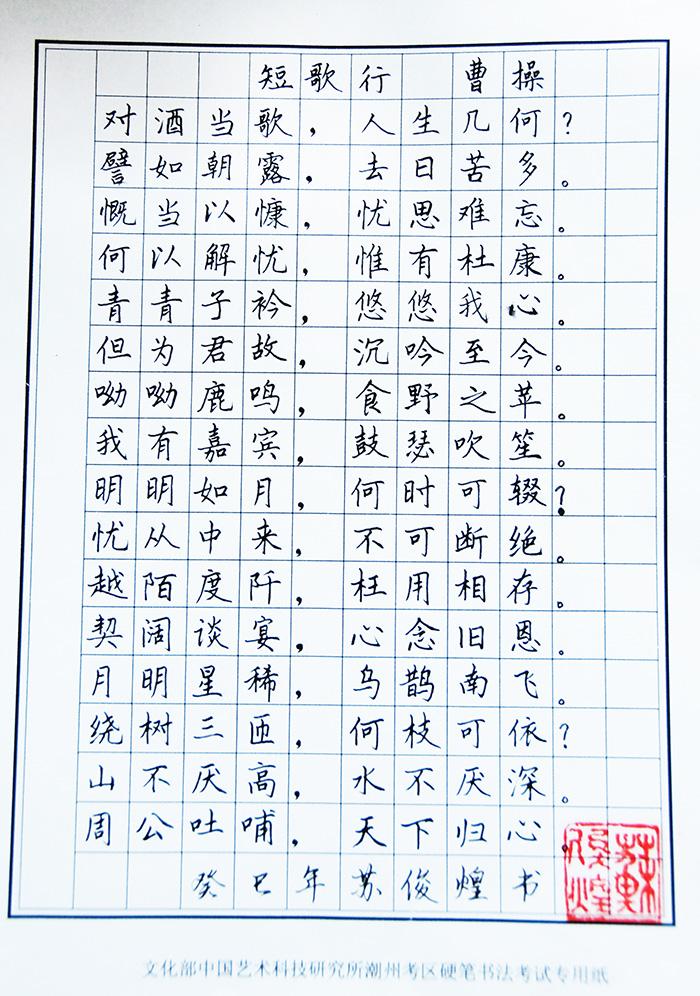 短歌行 曹操
对酒当歌，人生几何？
譬如朝露，去日苦多。
慨当以慷，忧思难忘。
何以解忧，惟有杜康。
青青子衿，悠悠我心。
但为君故，沉吟至今。
呦呦鹿鸣，食野之苹。
我有嘉宾，鼓瑟吹笙。
明明如月，何时可辍？
忧从中来，不可断绝。
越陌度阡，枉用相存。
契阔谈宴，心念旧恩。
月明星稀，乌鹊南飞。
绕树三匝，何枝可依？
山不厌高，水不厌深。
周公吐哺，天下归心。
癸巳年苏俊煌书
苏俊煌
文化部中国艺术科技研究所潮州考区硬笔书法考试专用纸